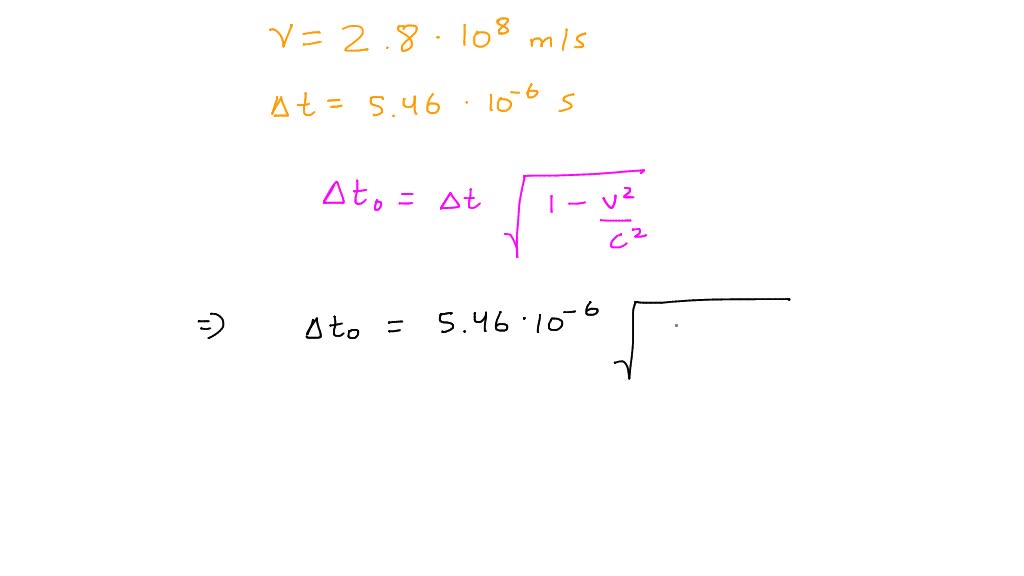 v = 2.8 · 10⁸ m/s
Δt = 5.46 · 10⁻⁶ s
Δt₀ = Δt √(1 - v²/c²)
⇒ Δt₀ = 5.46 · 10⁻⁶ √